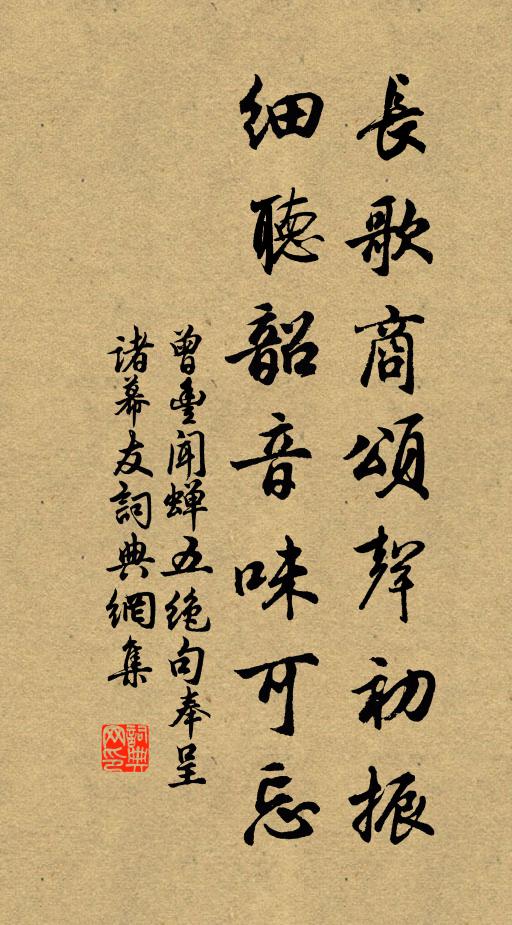 長歌商頌聲初振
細聽韶音味可忘
曾豊聞蟬五絶句奉呈
諸幕友詞典網集
詞典网印